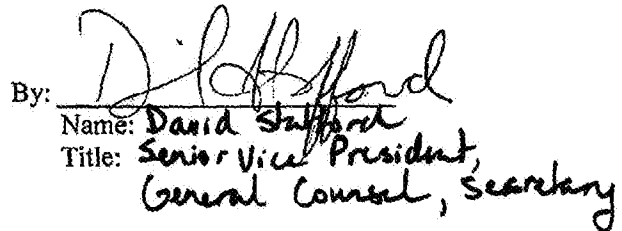 By: D Stafford
Name: David Stafford
Title: Senior Vice President,
General Counsel, Secretary